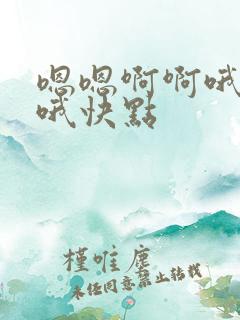 嗯嗯啊啊哦
哦快點
槿唯塵
未任同意禁止转载